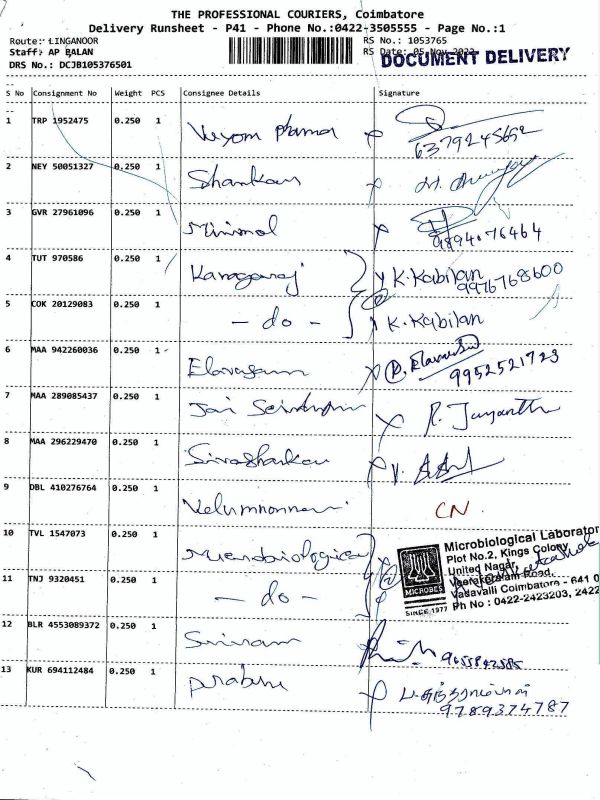 THE PROFESSIONAL COURIERS, Coimbatore
Delivery Runsheet - P41 - Phone No.:0422-3505555 - Page No.:1
Route: LINGANOOR
RS No.: 1053765
Staff: AP BALAN
RS Date: 05 Nov 2022
DOCUMENT DELIVERY
DRS No.: DCJB105376501
S No Consignment No Weight PCS Consignee Details Signature
1 TRP 1952475 0.250 1
6379245652
2 NEY 50051327 0.250 1 Shankar
3 GVR 27961096 0.250 1 Minimol
9894076464
4 TUT 970586 0.250 1 Kanagaraj K. Kabilan
9976768600
5 COK 20129083 0.250 1 - do - K. Kabilan
6 MAA 942260036 0.250 1 Elavarasan
9952521723
7 MAA 289085437 0.250 1 Jai R. Jayanth
8 MAA 296229470 0.250 1 Sivashankar
9 DBL 410276764 0.250 1 CN
10 TVL 1547073 0.250 1 Microbiological
Microbiological Laborator
Plot No.2, Kings Colony
United Nagar,
Veerakeralam Road,
Vadavalli Coimbatore - 641 0
Ph No : 0422-2423203, 2422
MICROBES
SINCE 1977
11 TNJ 9320451 0.250 1 - do -
12 BLR 4553089372 0.250 1 Sriram
9655842585
13 KUR 694112484 0.250 1 Prabhu
9789374787